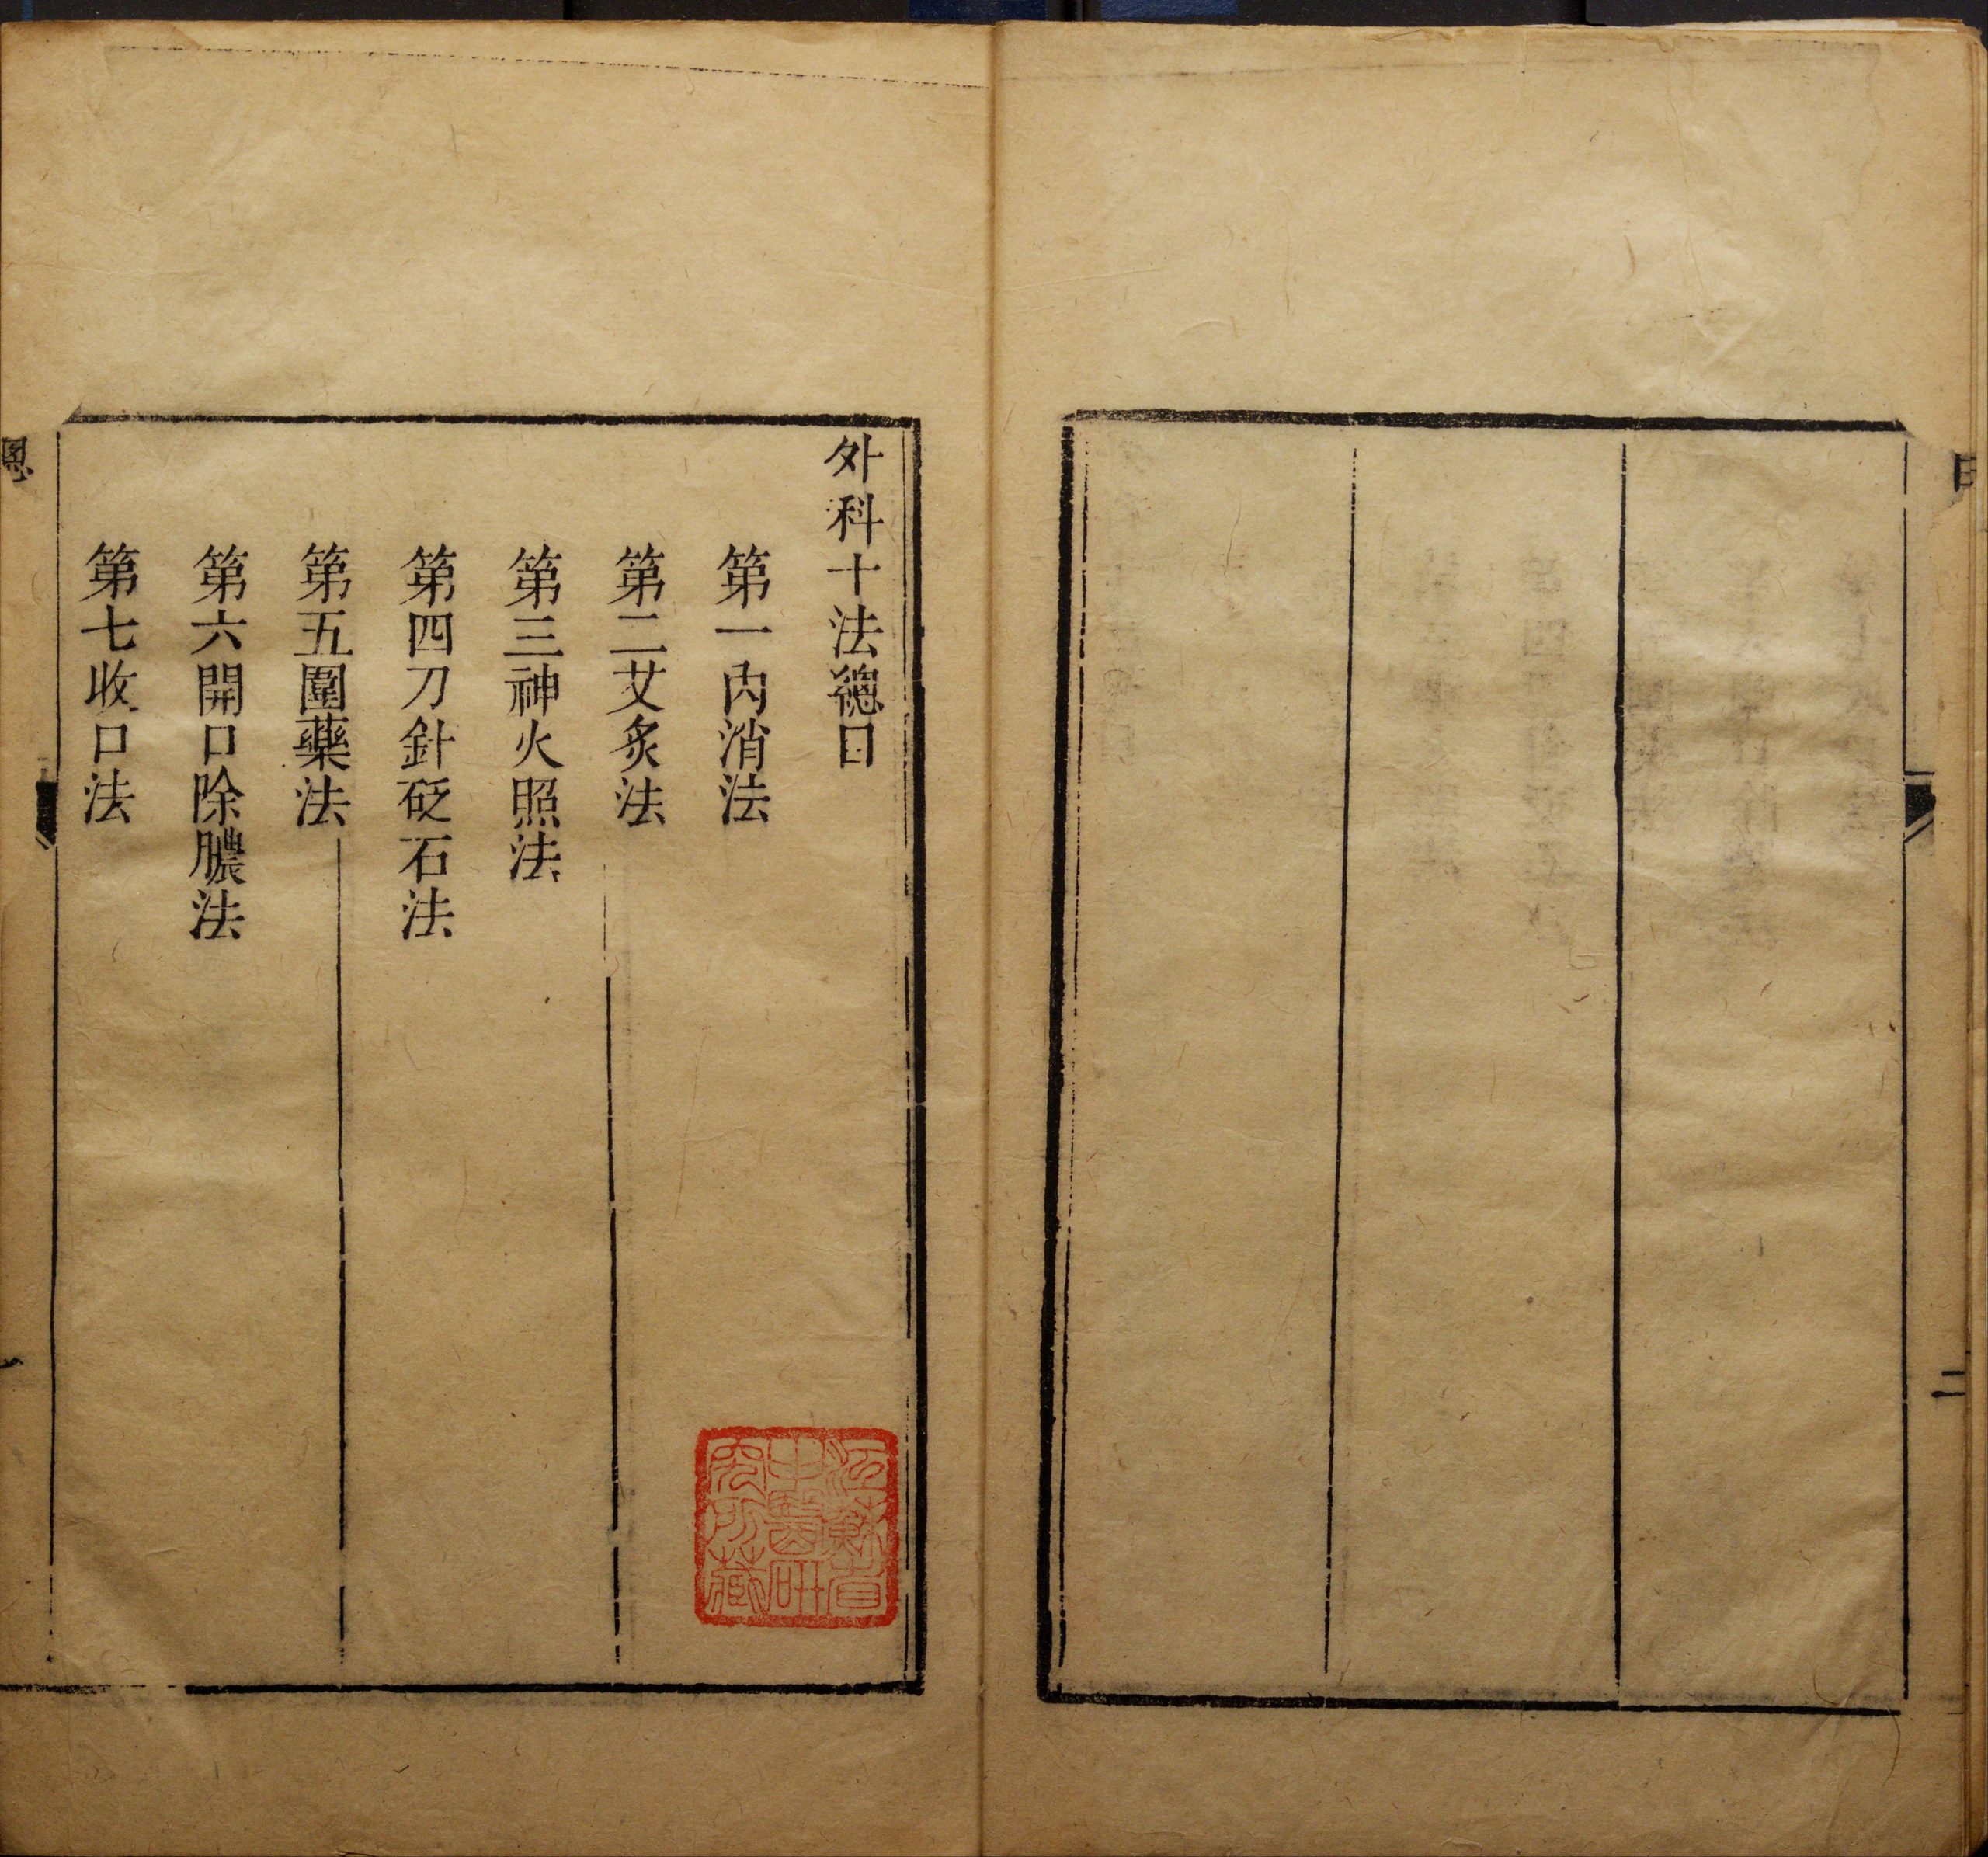 二
外科十法總目
第一內消法
第二艾炙法
第三神火照法
第四刀針砭石法
第五圍藥法
第六開口除膿法
第七收口法
江蘇省
中醫研
究所藏